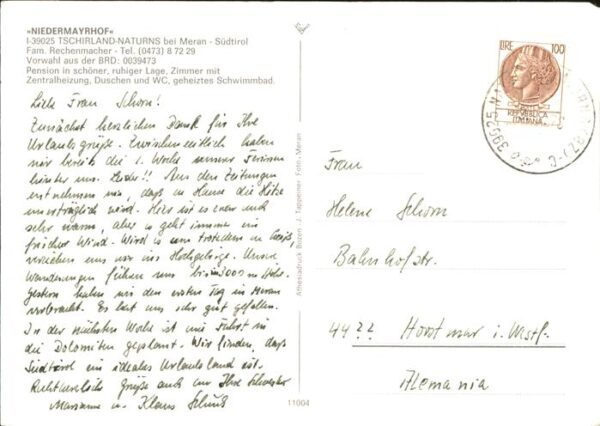 »NIEDERMAYRHOF«
I-39025 TSCHIRLAND-NATURNS bei Meran - Südtirol
Fam. Rechenmacher - Tel. (0473) 8 72 29
Vorwahl aus der BRD: 0039473
Pension in schöner, ruhiger Lage, Zimmer mit
Zentralheizung, Duschen und WC, geheiztes Schwimmbad.
Liebe Frau Schorn!
Zunächst herzlichen Dank für Ihre
Urlaubsgrüße. Zwischenzeitlich haben
wir bereits die 1. Woche unserer Ferien
hinter uns. Leider!! Aus den Zeitungen
entnehmen wir, daß zu Hause die Hitze
unerträglich wird. Hier ist es zwar auch
sehr warm, aber es geht immer ein
frischer Wind. Wird es uns trotzdem zu heiß,
verziehen wir uns ins Hochgebirge. Unsere
Wanderungen führen uns bis in 3000 m Höhe.
Gestern haben wir den ersten Tag in Meran
verbracht. Es hat uns sehr gut gefallen.
In der nächsten Woche ist eine Fahrt in
die Dolomiten geplant. Wir finden, daß
Südtirol ein ideales Urlaubsland ist.
Recht herzliche Grüße auch an Ihre Schwester
Marianne u. Klaus
Athesiadruck Bozen
J. Tappeiner. Foto, Meran
11004
LIRE 100
REPVBBLICA
ITALIANA
39025
Frau
Helene Schorn
Bahnhofstr.
44?? Horstmar i. Westf.
Alemania